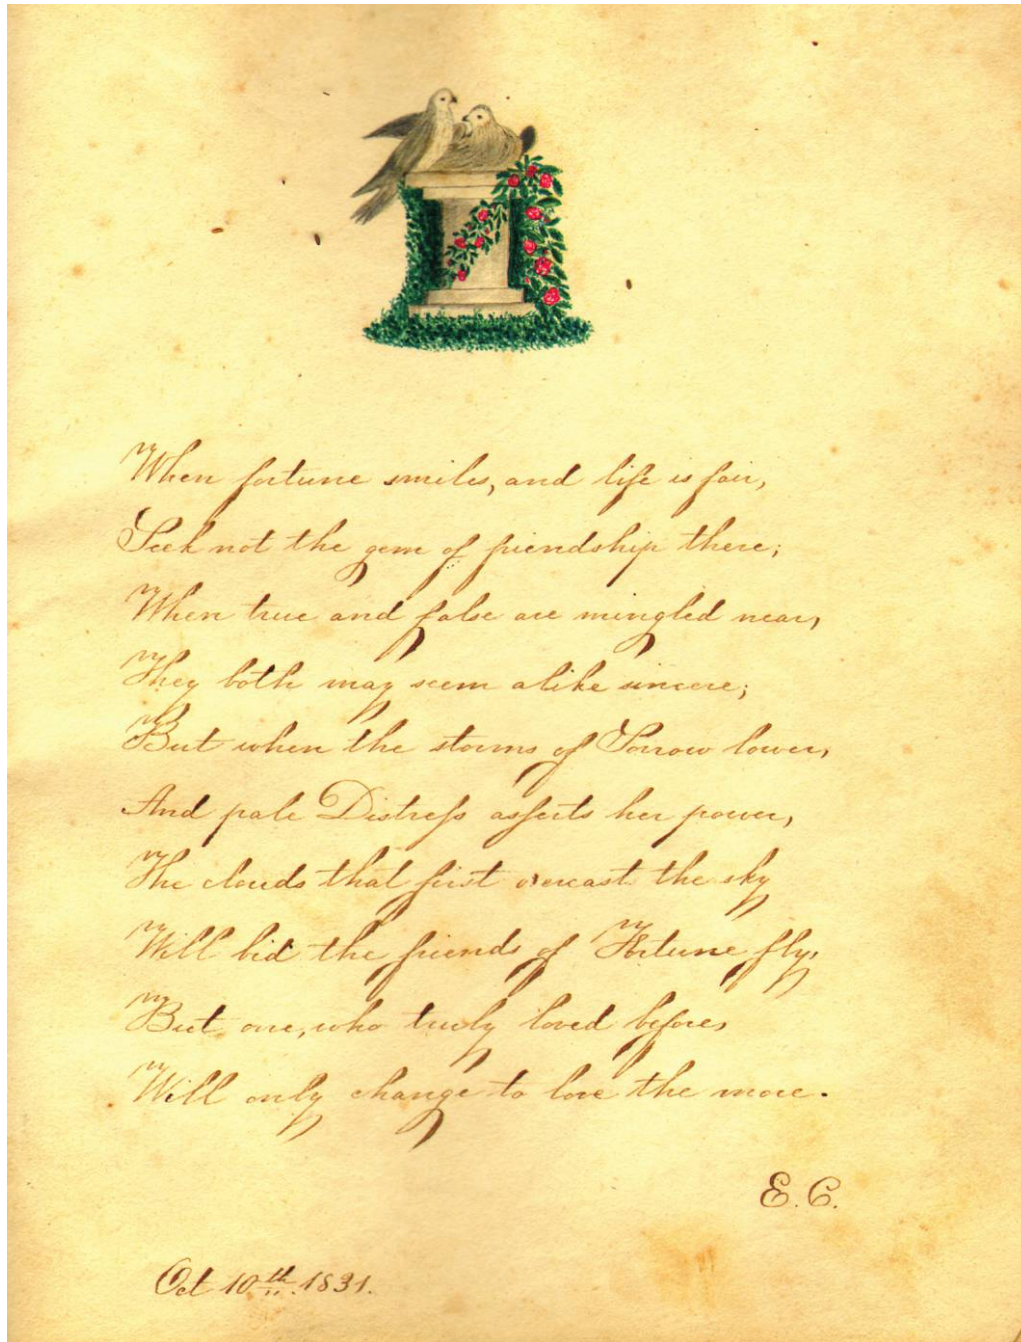 When fortune smiles, and life is fair,
Seek not the gem of friendship there;
When true and false are mingled near,
They both may seem alike sincere;
But when the storms of Sorrow lower,
And pale Distreſs aſserts her power,
The clouds that first overcast the sky
Will bid the friends of Fortune fly,
But one, who truly loved before,
Will only change to love the more.
E. C.
Oct 10th. 1831.